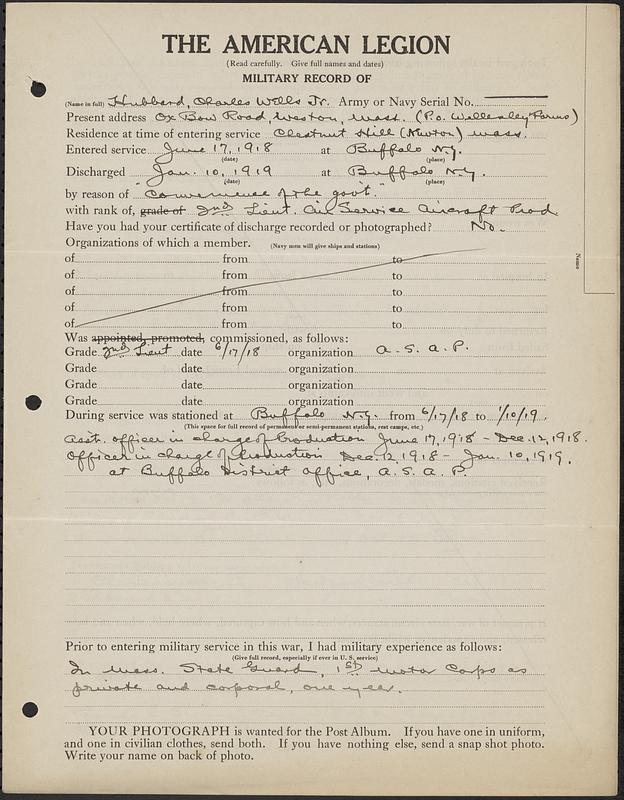 THE AMERICAN LEGION
(Read carefully. Give full names and dates)
MILITARY RECORD OF
(Name in full) Hubbard, Charles Wells Jr. Army or Navy Serial No.
Present address Ox Bow Road, Weston, Mass. (P.O. Wellesley Farms)
Residence at time of entering service Chestnut Hill (Newton) Mass.
Entered service June 17, 1918 at Buffalo N.Y.
(date) (place)
Discharged Jan. 10, 1919 at Buffalo N.Y.
(date) (place)
by reason of "Convenience of the gov't."
with rank of, grade of 2nd Lieut. Air Service Aircraft Prod.
Have you had your certificate of discharge recorded or photographed? No.
Organizations of which a member. (Navy men will give ships and stations)
of from to
of from to
of from to
of from to
of from to
Name
Was appointed, promoted, commissioned, as follows:
Grade 2nd Lieut date 6/17/18 organization A.S.A.P.
Grade date organization
Grade date organization
Grade date organization
During service was stationed at Buffalo N.Y. from 6/17/18 to 1/10/19.
(This space for full record of permanent or semi-permanent stations, rest camps, etc.)
Asst. Officer in charge of Production June 17, 1918 - Dec. 12, 1918.
Officer in charge of Production Dec. 12, 1918 - Jan. 10, 1919.
at Buffalo District Office, A.S.A.P.
Prior to entering military service in this war, I had military experience as follows:
(Give full record, especially if ever in U. S. service)
In Mass. State Guard, 1st Motor Corps as
private and corporal, one year.
YOUR PHOTOGRAPH is wanted for the Post Album. If you have one in uniform,
and one in civilian clothes, send both. If you have nothing else, send a snap shot photo.
Write your name on back of photo.